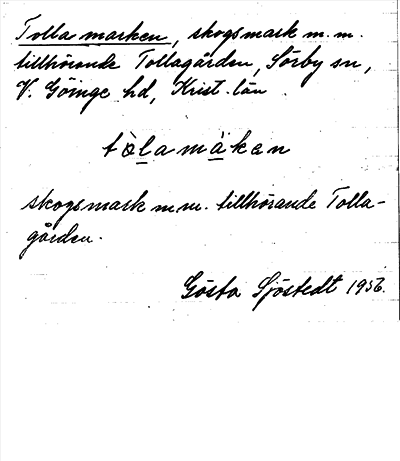 Tolla marken, skogsmark m.m.
tillhörande Tollagården, Sörby sn,
V. Göinge hd, Krist. län.
tòlamàkan
skogsmark m.m. tillhörande Tolla-
gården.
Gösta Sjöstedt 1956.